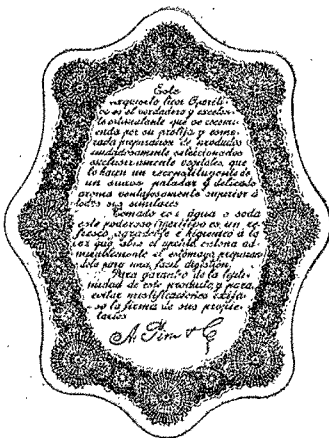 Este
exquisito licor Aperiti-
vo es el verdadero y excelen-
te estimulante que se recomi-
enda por su prolija y esme-
rada preparacion de productos
cuidadosamente seleccionados
exclusivamente vegetales, que
lo hacen un reconstituyente de
un suave paladar y delicado
aroma ventajosamente superior á
todos sus similares
Tomado con agua o soda
este poderoso Aperitivo es un re-
fresco agradable e higienico á la
vez que abre el apetito entona ad-
mirablemente el estomago preparan-
dolo para una facil digestión.
Para garantia de la legiti-
midad de este producto y para
evitar mistificaciones exija-
se la firma de sus propie-
tarios